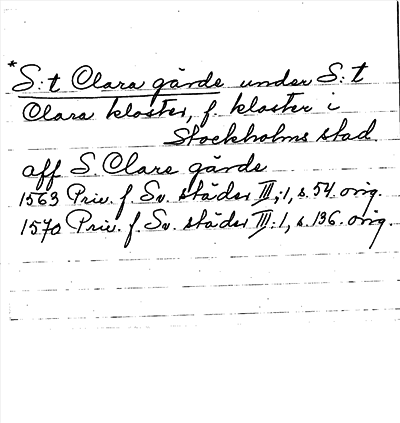 *S:t Clara gärde under S:t
Clara kloster, f. kloster i
Stockholms stad.
aff S. Clare gärde
1563 Priv. f. Sv. städer III:1, s. 54. orig.
1570 Priv. f. Sv. städer III:1, s. 136. orig.